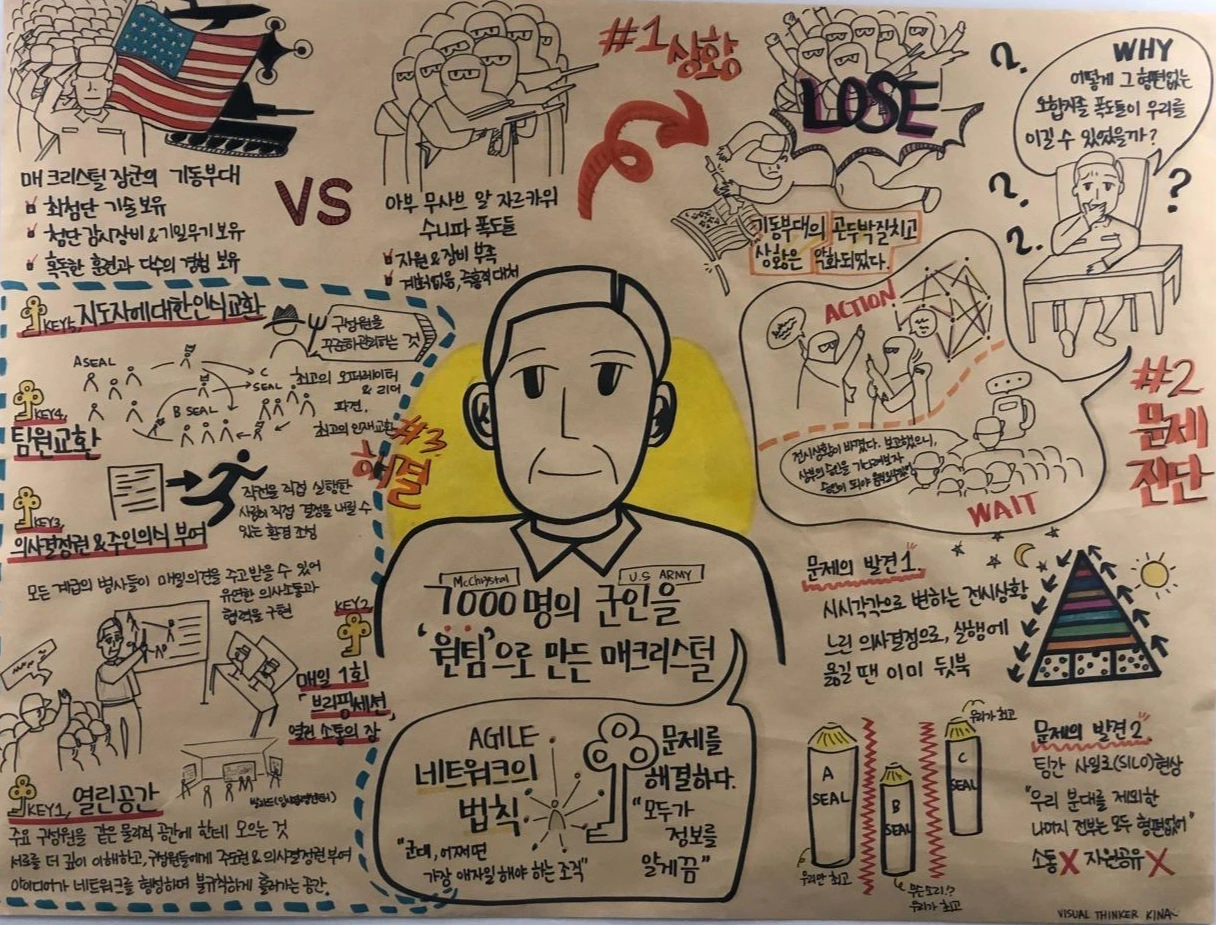 #1 상황
매크리스털 장군의 기동부대
최첨단 기술 보유
첨단 감시장비 & 기밀무기 보유
혹독한 훈련과 다수의 경험 보유
VS
아부 무사브 알 자르카위
수니파 폭도들
자원 & 장비 부족
계획없음, 즉흥적 대처
LOSE
기동부대의 곤두박질치고
상황은 악화되었다.
WHY
어떻게 그 형편없는
오합지졸 폭도들이 우리를
이길 수 있었을까?
?
?
?
?
#2
문제
진단
ACTION
전시상황이 바꼈다. 보고했으니,
상부의 승인을 기다려보자
WAIT
문제의 발견 1.
시시각각으로 변하는 전시상황
느린 의사결정으로, 실행에
옮길 땐 이미 뒷북
문제의 발견 2.
팀간 사일로(SILO)현상
"우리 분대를 제외한
나머지 전부는 모두 형편없어"
소통 X 자원공유 X
A
SEAL
우리만 최고
B
SEAL
무슨소리!?
우리가 최고
C
SEAL
우리가 최고
#3.
해결
KEY1, 열린공간
주요 구성원을 같은 물리적 공간에 한데 모으는 것
서로를 더 깊이 이해하고, 구성원들에게 주도권 & 의사결정권 부여
아이디어가 네트워크를 형성하며 불규칙하게 흘러가는 공간.
KEY2
매일 1회
브리핑세션,
열린 소통의 장
모든 계급의 병사들이 매일 의견을 주고받을 수 있어
유연한 의사소통과
협력을 구현
KEY3,
의사결정권 & 주인의식 부여
작전을 직접 실행한
사람이 직접 결정을 내릴 수
있는 환경 조성
KEY4,
팀원교환
A SEAL
B SEAL
C
SEAL
최고의 오퍼레이터
& 리더
파견.
최고의 인재교환
KEY5, 지도자에 대한 인식교환
구성원을
꾸준히 관리하는 것
McChrystal
U.S ARMY
7000명의 군인을
'원팀'으로 만든 매크리스털
AGILE
네트워크의
법칙.
"군대, 어쩌면
가장 애자일 해야 하는 조직"
문제를
해결하다.
"모두가
정보를
알게끔"
VISUAL THINKER KINA